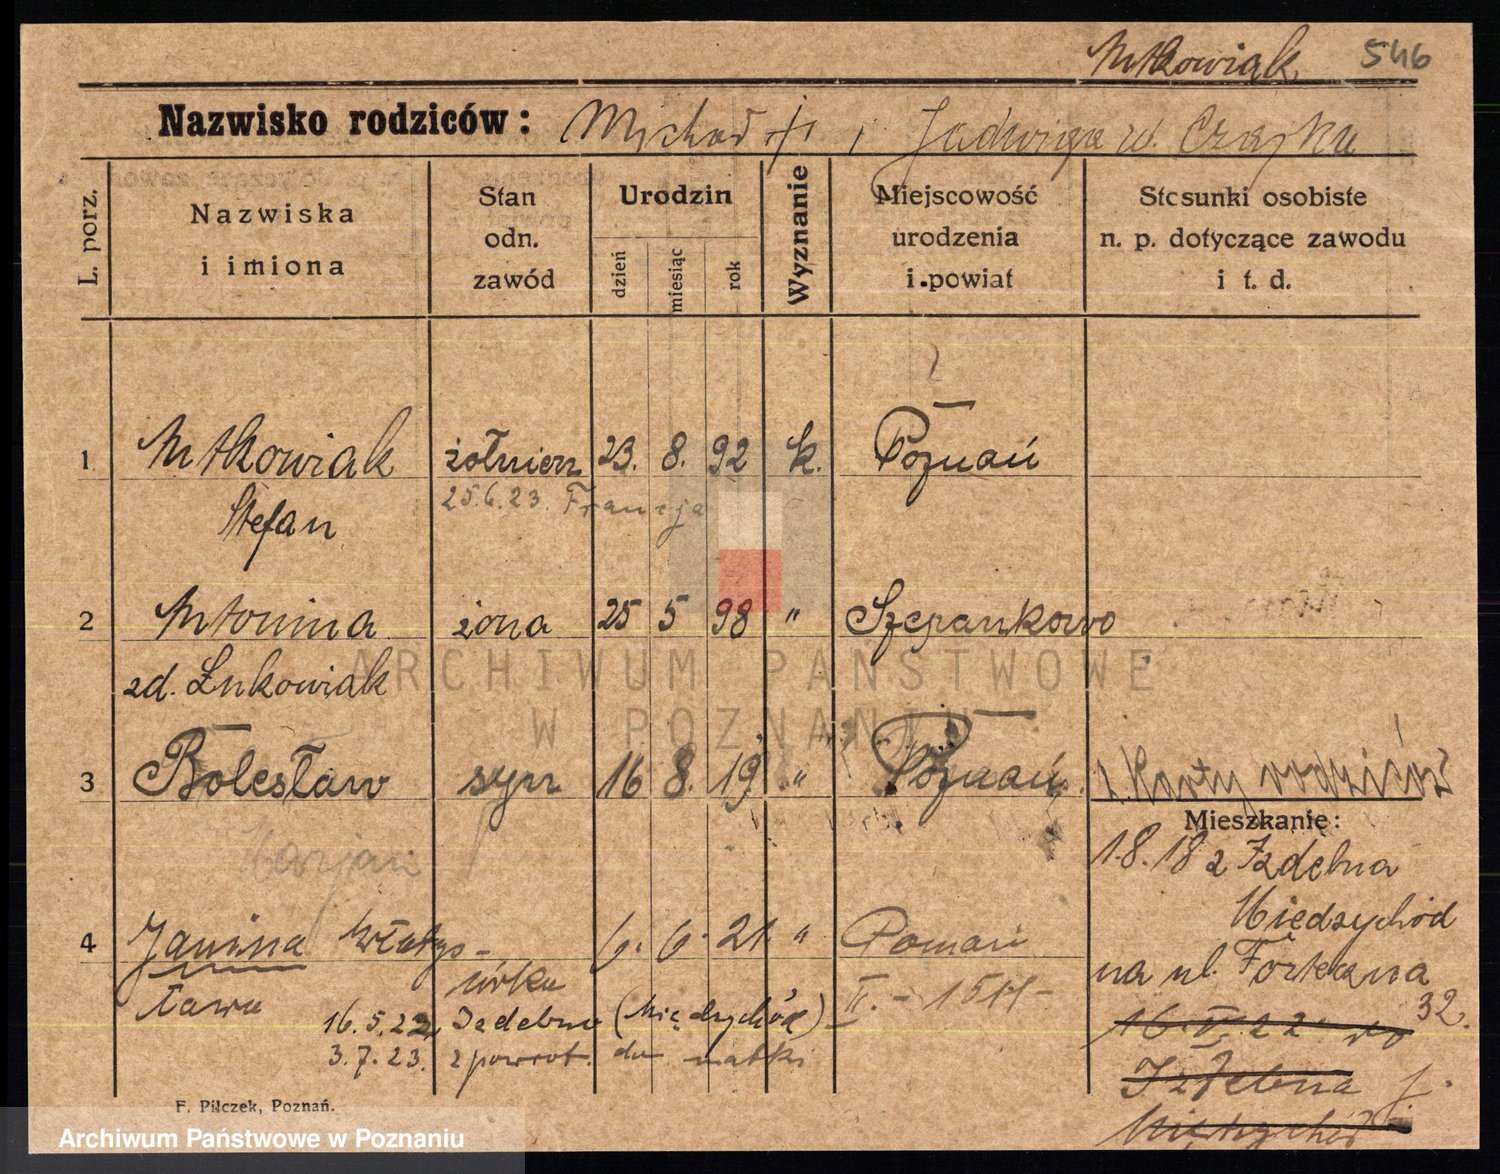 Ratkowiak 546
Nazwisko rodziców: Michał † i Jadwiga ur. Czajka
L. porz.
Nazwiska
i imiona
Stan
odn.
zawód
Urodzin
dzień
miesiąc
rok
Wyznanie
Miejscowość
urodzenia
i powiat
Stosunki osobiste
n. p. dotyczące zawodu
i t. d.
1 Ratkowiak żołnierz 23. 8. 92 k. Poznań
Stefan 25.6.23. Francja
2 Antonina żona 25 5 98 " Szczepankowo
zd. Łukowiak
3 Bolesław syn 16 8. 19 " Poznań
Marjan
4 Janina Władys- 6. 6. 21. " Poznań
ława córka II. - 1511 -
16.5.22. Izdebno (Międzychód)
3.7.23. z powrot. do matki
2. Karty rodziców
Mieszkanie:
1.8.18 z Izdebna
Międzychód
na ul. Forteczna
32.
16.V.22 do
Izdebna
Międzychód
F. Pilczek, Poznań.
ARCHIWUM PAŃSTWOWE
W POZNANIU
Archiwum Państwowe w Poznaniu